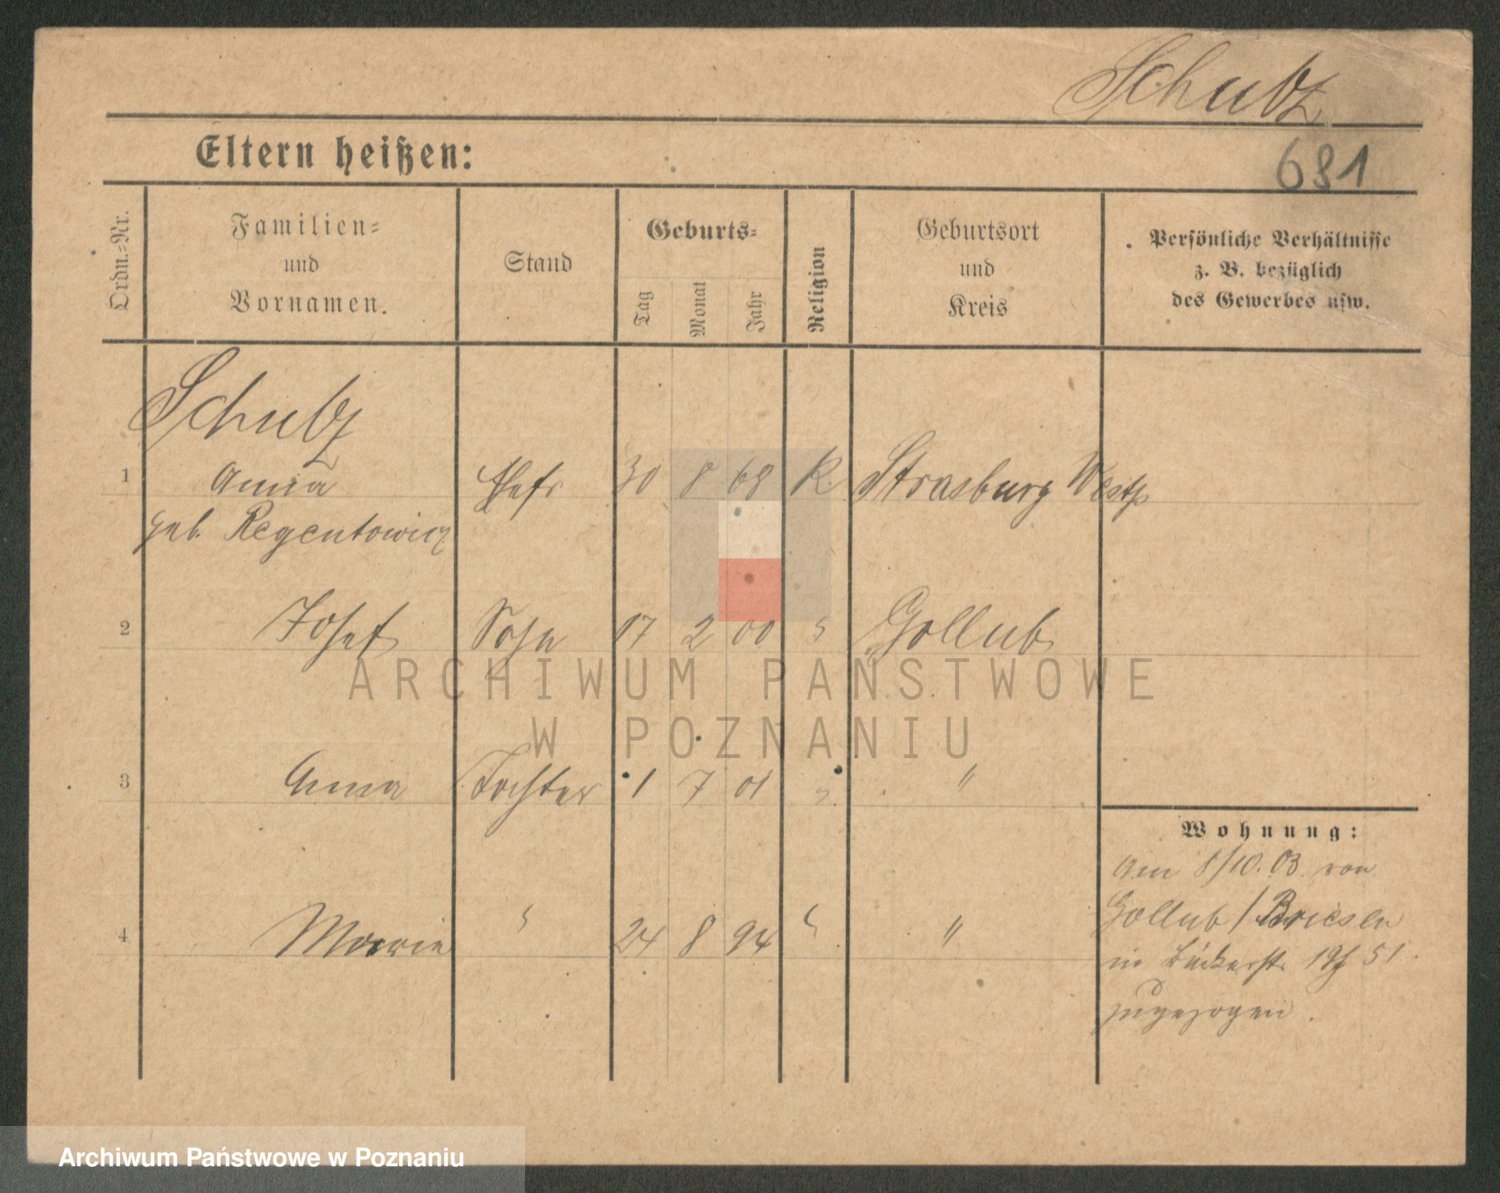 Schulz
681
Eltern heißen:
Ordn.=Nr.
Familien=
und
Vornamen.
Stand
Geburts=
Tag
Monat
Jahr
Religion
Geburtsort
und
Kreis
Persönliche Verhältnisse
z. B. bezüglich
des Gewerbes usw.
Schulz
1 Anna Ehefr 30 8 68 K Strasburg Westp
geb. Regentowicz
2 Josef Sohn 17 2 00 " Gollub
ARCHIWUM PAŃSTWOWE
W POZNANIU
3 Anna Tochter 1 7 01 " "
Wohnung:
Am 8/10. 03. von
Gollub / Briesen
in Bäckerstr. 51.
zugezogen.
4 Marie " 24 8 94 " "
Archiwum Państwowe w Poznaniu